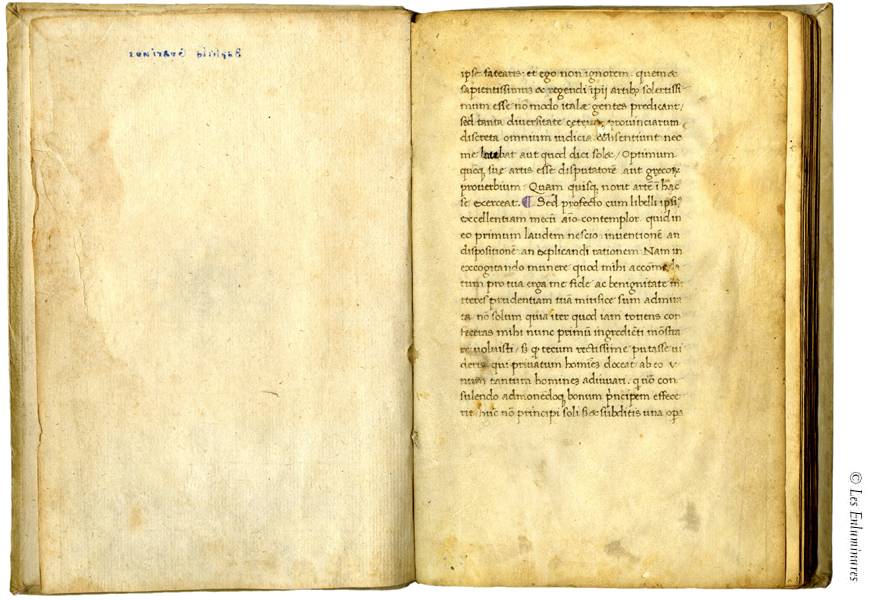 Baptista Guarinus
ipse fatearis: et ego non ignorem. quem &
sapientissimum & regendi ipsi artibꝫ solertissi
mum esse nō modo italæ gentes predicant/
sed tanta diuersitate ceterarꝫ prouinciarum
discreta omnium iudicia cōsentiunt nec
me latebat aut quod dici solet / Optimum
quēqꝫ suę artis esse disputatorē aut grecorꝫ
prouerbium. Quam quisqꝫ norit artē ī hac
se exerceat. ¶ Sed profecto cum libelli ipsiꝰ
excellentiam mecū aīo contemplor quid in
eo primum laudem nescio. inuentionē an
dispositionē an explicandi rationem. Nam in
excogitando munere quod mihi accōmoda
tum pro tua erga me fide ac benignitate
prudentiam tuā mirifice sum admira
ta nō solum quia iter quod iam totiens con
feceras mihi nunc primū ingrediēti mōstra
re uoluisti / sꝫ qꝫ tecum rectissime putasse ui
deris qui priuatum homīes doceat ab eo v
num tantum homines adiuuari. qui uō con
sulendo admonēdoqꝫ bonum prīcipem effece
rit hūc nō principi soli sꝫ & subditis una opa
© Les Enluminures